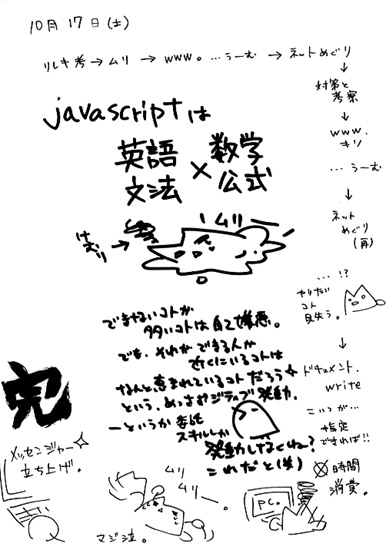 10月17日(土)
リレキ考→ムリ→www。…うーむ→ネットめぐり
↓
対策と
考察
↓
www.
キソ
…うーむ
↓
ネット
めぐり
(再)
…!?
やりたい
コト
見失う。
↓
ドキュメント.
write
こいつが…
指定
できれば!!
時間
消費。
javascriptは
英語
文法
×
数学
公式
ムリー
けむり→
できないコトが
多いコトは自己嫌悪。
でも、それができる人が
近くにいるコトは
なんと恵まれているコトだろう☆
という、めっさポジティブ発動。
ーというか委託
スキルしか
発動してなくね〜?
これだと(笑)
完
メッセンジャー☆
立ち上げ。
ムリ
ムリー。
マジ泣。
PC。